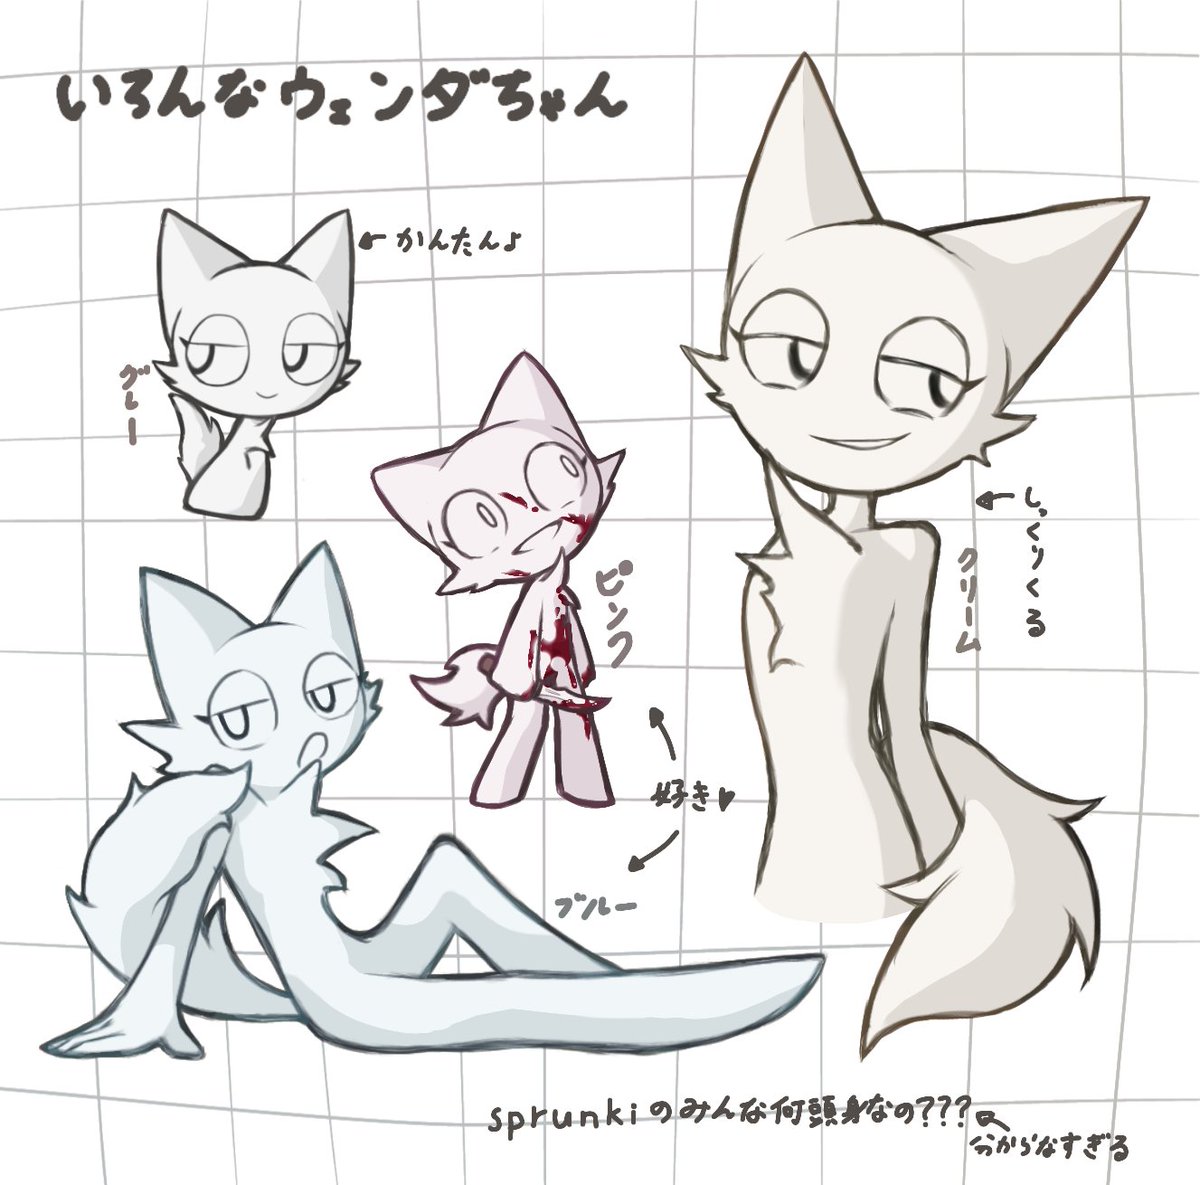 いろんなウェンダちゃん
←かんたんよ
グレー
ピンク
←しっくりくる
クリーム
好き♥
ブルー
sprunkiのみんな何頭身なの???
←分からなすぎる